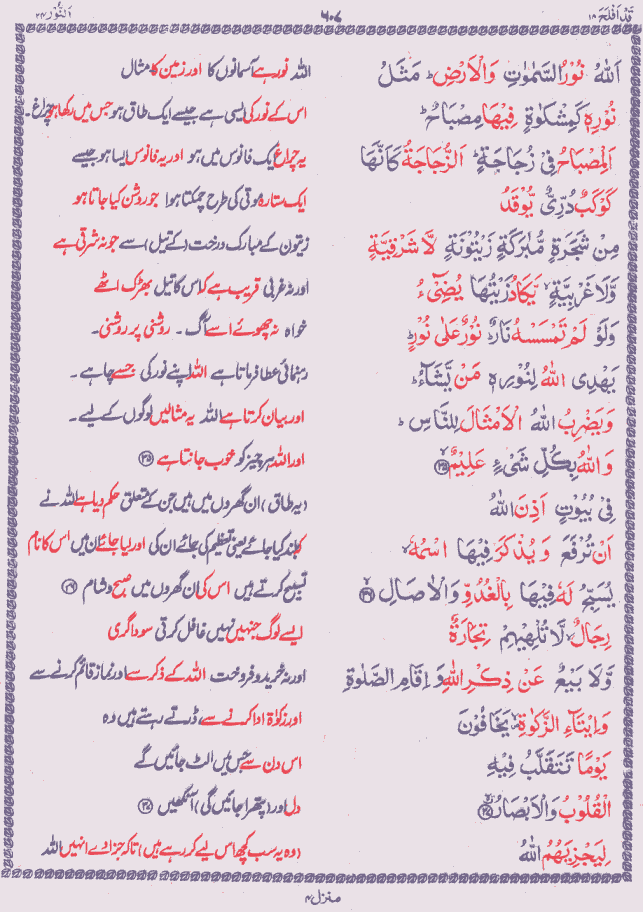 قَدْ اَفْلَحَ ۱۸
۶۰۷
اَلنُّوْر ۲۴
اَللّٰهُ نُوْرُ السَّمٰوٰتِ وَالْاَرْضِ ؕ مَثَلُ
اللہ نور ہے آسمانوں کا اور زمین کا مثال
نُوْرِهٖ كَمِشْكٰوةٍ فِيْهَا مِصْبَاحٌ ؕ
اس کے نور کی ایسی ہے جیسے ایک طاق ہو جس میں رکھا ہو چراغ۔
اَلْمِصْبَاحُ فِيْ زُجَاجَةٍ ؕ اَلزُّجَاجَةُ كَاَنَّهَا
یہ چراغ ایک فانوس میں ہو اور یہ فانوس ایسا ہو جیسے
كَوْكَبٌ دُرِّيٌّ يُّوْقَدُ
ایک ستارہ موتی کی طرح چمکتا ہوا جو روشن کیا جاتا ہو
مِنْ شَجَرَةٍ مُّبٰرَكَةٍ زَيْتُوْنَةٍ لَّا شَرْقِيَّةٍ
زیتون کے مبارک درخت (کے تیل) سے جو نہ شرقی ہے
وَّلَا غَرْبِيَّةٍ ۙ يَّكَادُ زَيْتُهَا يُضِيْٓءُ
اور نہ غربی قریب ہے کہ اس کا تیل بھڑک اٹھے
وَلَوْ لَمْ تَمْسَسْهُ نَارٌ ؕ نُوْرٌ عَلٰى نُوْرٍ ؕ
خواہ نہ چھوئے اسے آگ ۔ روشنی پر روشنی۔
يَهْدِى اللّٰهُ لِنُوْرِهٖ مَنْ يَّشَآءُ ؕ
رہنمائی عطا فرماتا ہے اللہ اپنے نور کی جسے چاہے ۔
وَيَضْرِبُ اللّٰهُ الْاَمْثَالَ لِلنَّاسِ ؕ
اور بیان کرتا ہے اللہ یہ مثالیں لوگوں کے لیے ۔
وَاللّٰهُ بِكُلِّ شَىْءٍ عَلِيْمٌ ۙ ۳۵
اور اللہ ہر چیز کو خوب جانتا ہے ۳۵
فِيْ بُيُوْتٍ اَذِنَ اللّٰهُ
(یہ طاق) ان گھروں میں ہیں جن کے متعلق حکم دیا ہے اللہ نے
اَنْ تُرْفَعَ وَيُذْكَرَ فِيْهَا اسْمُهٗ ۙ
کہ بلند کیا جائے یعنی تعظیم کی جائے ان کی اور لیا جائے ان میں اس کا نام
يُسَبِّحُ لَهٗ فِيْهَا بِالْغُدُوِّ وَالْاٰصَالِ ۙ ۳۶
تسبیح کرتے ہیں اس کی ان گھروں میں صبح و شام ۳۶
رِجَالٌ ۙ لَّا تُلْهِيْهِمْ تِجَارَةٌ
ایسے لوگ جنہیں نہیں غافل کرتی سوداگری
وَّلَا بَيْعٌ عَنْ ذِكْرِ اللّٰهِ وَاِقَامِ الصَّلٰوةِ
اور نہ خرید و فروخت اللہ کے ذکر سے اور نماز قائم کرنے سے
وَاِيْتَآءِ الزَّكٰوةِ ۙ يَخَافُوْنَ
اور زکوٰۃ ادا کرنے سے، ڈرتے رہتے ہیں وہ
يَوْمًا تَتَقَلَّبُ فِيْهِ
اس دن سے جس میں الٹ جائیں گے
الْقُلُوْبُ وَالْاَبْصَارُ ۙ ۳۷
دل اور (پتھرا جائیں گی) آنکھیں ۳۷
لِيَجْزِيَهُمُ اللّٰهُ
(وہ یہ سب کچھ اس لیے کر رہے ہیں) تاکہ جزا دے انہیں اللہ
منزل ۴